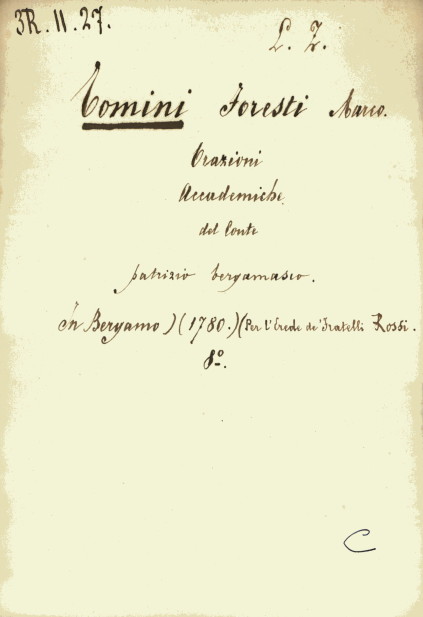 3R.11.27.
L. Z.
Tomini Foresti Marco.
Orazioni
Accademiche
del Conte
patrizio bergamasco.
In Bergamo)(1780.)(Per l'Erede de' Fratelli Rossi.
8º.
C